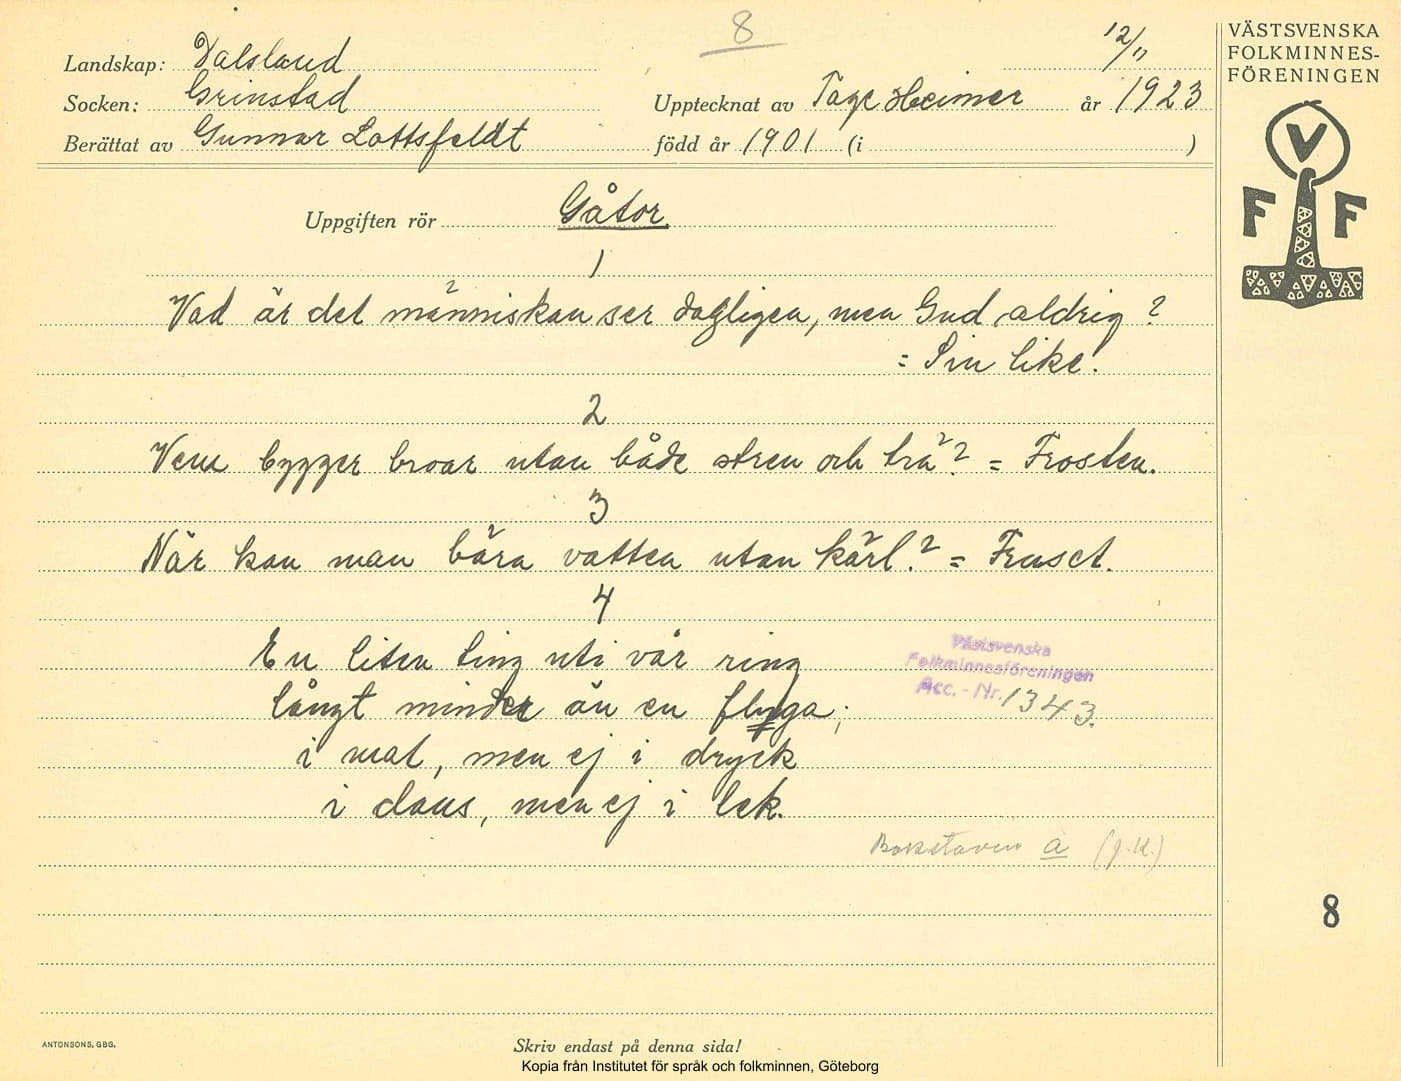 8
12/11
VÄSTSVENSKA
FOLKMINNES-
FÖRENINGEN
Landskap: Dalsland
Socken: Grinstad
Upptecknat av Tage Heimer år 1923
Berättat av Gunnar Lottsfeldt
född år 1901 (i )
V
F F
Uppgiften rör Gåtor
1
Vad är det människan ser dagligen, men Gud aldrig?
= Sin like.
2
Vem bygger broar utan både sten och trä? = Frosten.
3
När kan man bära vatten utan kärl? = Fruset.
4
En liten ting uti vår ring
långt mindre än en flyga;
i mat, men ej i dryck
i dans, men ej i lek.
Västsvenska
Folkminnesföreningen
Acc. - Nr. 1343.
Bokstaven a (J.K.)
8
ANTONSONS, GBG.
Skriv endast på denna sida!
Kopia från Institutet för språk och folkminnen, Göteborg